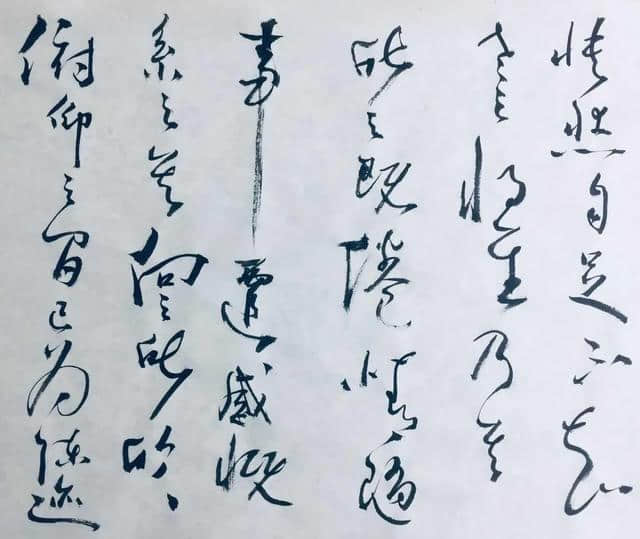 快然自足不知
老之將至及其
所之既倦情隨
事遷感慨
系之矣向之所欣
俯仰之間已為陳迹